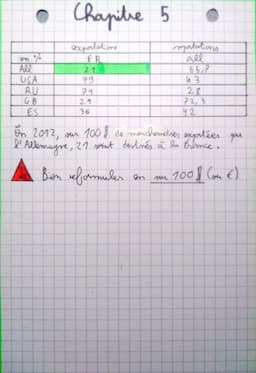 Chapitre 5
exportations importations
en % FR All
All 21
USA 49 43
RU 74 28
GB 29 72,3
ES 36 42
En 2012, sur 100 $ de marchandises exportées par
l'Allemagne, 21 sont destinés à la France.
Bien reformuler en sur 100 $ (ou €)